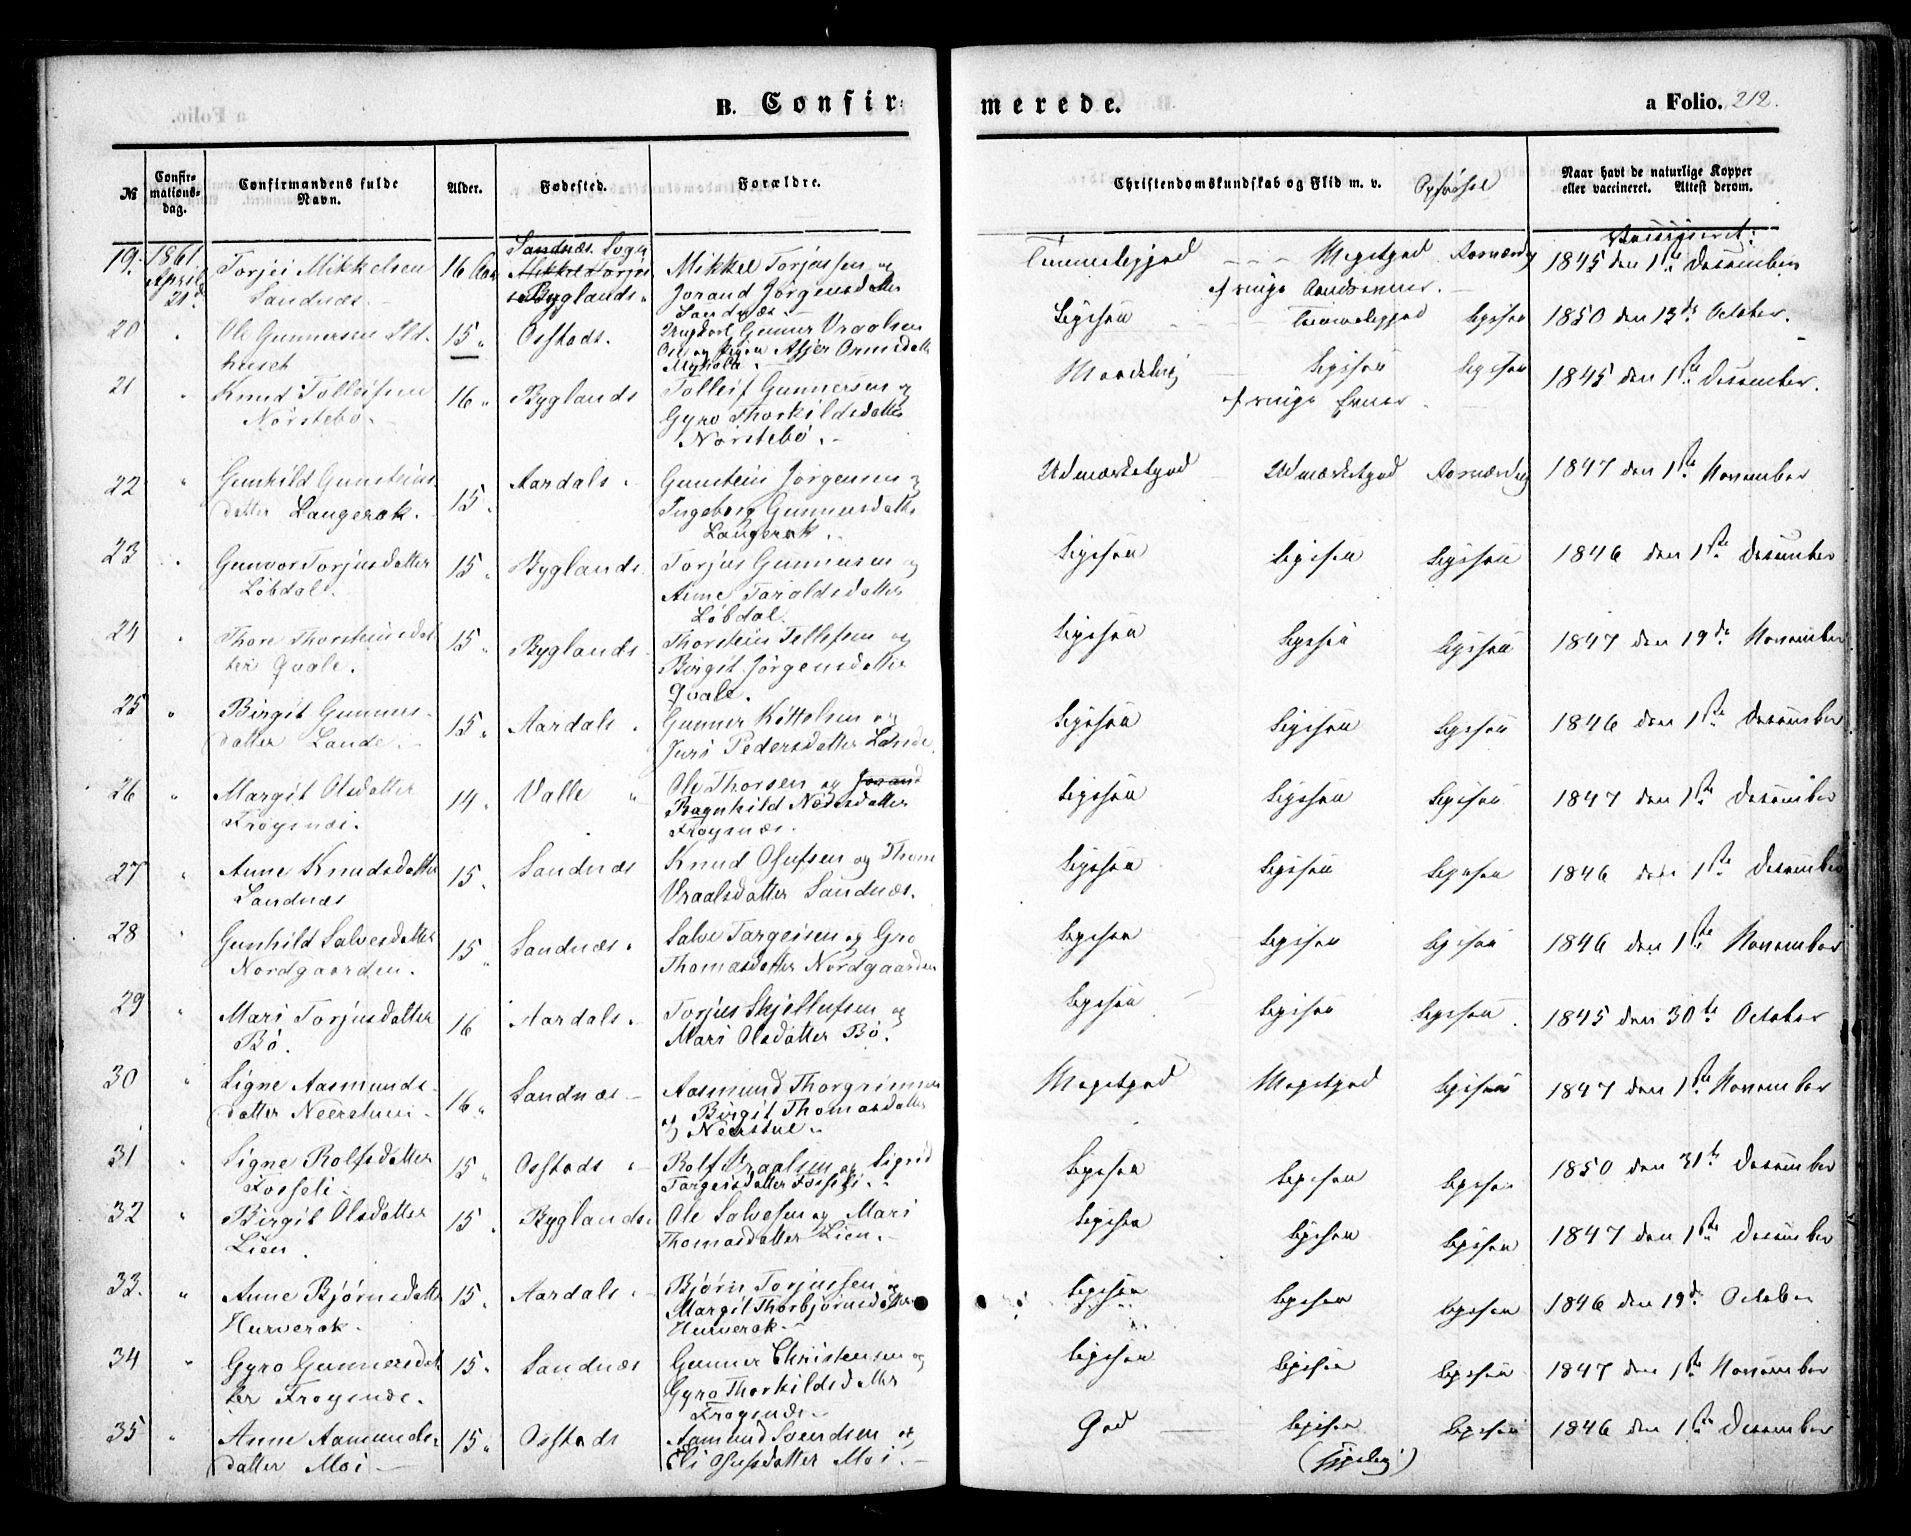 B. Confir-
merede.
a Folio. 212.
№
Confir-
mations-
dag.
Confirmandens fulde
Navn.
Alder.
Fødested.
Forældre.
Christendomskundskab og Flid m. v.
Opførsel
Naar havt de naturlige Kopper
eller vaccineret. Attest derom.
19. 1861 April 21de
Torjei Mikkelsen
Sandnæs.
16 Aar
Sandnæs Sogn
Byglands
Mikkel Torjussen og
Jorand Jørgensdatter
Sandnæs.
Temmeliggod
Megetgod
af ringe
1845 den 1ste December
20
Ole Gunnersen
huset
15
Osstads.
Gunner Vraalsen
Ose og
1850 den 13de October.
21
Knud Tolleifsen
Nørstebø.
16
Byglands
Tolleif Gunnersen og
Gyro Thorkildsdatter
Nørstebø.
Maadelig
Ligesaa
Ligesaa
af ringe Evner
1845 den 1ste December.
22
Gunhild Gunsteins
datter Langerak.
15
Aardals
Gunstein Jørgensen og
Ingeborg Gunnersdatter
Langerak.
Udmærketgod
Udmærketgod
1847 den 1ste November
23
Gunvor Torjusdatter
Løbdal.
15
Byglands
Torjus Gunnersen og
Anne Taraldsdatter
Løbdal.
Ligesaa
Ligesaa
Ligesaa
1846 den 1ste December
24
Thore Thorsteinsdat
ter Qvale.
15
Byglands
Thorstein Tellefsen og
Birgit Jørgensdatter
Qvale.
Ligesaa
Ligesaa
Ligesaa
1847 den 19de November
25
Birgit Gunners
datter Lande.
15
Aardals
Gunner Kittelsen og
Juri Pedersdatter Lande.
Ligesaa
Ligesaa
Ligesaa
1846 den 1ste December
26
Margit Olsdatter
Frøysnæs.
14
Valle
Ole Thorsen og Jorand
Ragnhild
Frøysnæs.
Ligesaa
Ligesaa
Ligesaa
1847 den 1ste December
27
Anne Knudsdatter
Sandnæs
15
Sandnæs
Knud Olufsen og Thone
Vraalsdatter Sandnæs.
Ligesaa
Ligesaa
Ligesaa
1846 den 1ste December
28
Gunhild Salvesdatter
Nordgaarden.
15
Sandnæs
Salve Targeisen og Gro
Thomasdatter Nordgaarden
Ligesaa
Ligesaa
Ligesaa
1846 den 1ste November
29
Mari Torjusdatter
Bø.
16
Aardals
Torjus Skjellufsen og
Mari Olsdatter Bø.
Ligesaa
Ligesaa
Ligesaa
1845 den 30te October
30
Signe Aasmunds
datter
16
Sandnæs
Aasmund Thorgrimsen
og Birgit Thomasdatter
Megetgod
Megetgod
Ligesaa
1847 den 1ste November
31
Signe Rolfsdatter
Fosseli.
15
Osstads
Rolf Vraalsen og Sigrid
Targeisdatter Fosseli.
Ligesaa
Ligesaa
Ligesaa
1850 den 31te December
32
Birgit Olsdatter
Lien.
15
Byglands
Ole Salvesen og Mari
Thomasdatter Lien.
Ligesaa
Ligesaa
Ligesaa
1847 den 1ste December
33.
Anne Bjørnsdatter
Hurverak.
15
Aardals
Bjørn Torjussen og
Margit Thorbjørnsdatter
Hurverak.
Ligesaa
Ligesaa
Ligesaa
1846 den 19de October
34
Gyro Gunnersdat
ter Frøysnæs.
15
Sandnæs
Gunner Christensen og
Gyro Thorkildsdatter
Frøysnæs.
Ligesaa
Ligesaa
Ligesaa
1847 den 1ste November
35
Anne Aamunds
datter Moi
15
Osstads
Aamund Svendsen og
Eli Olufsdatter Moi.
God
Ligesaa
Ligesaa
1846 den 1ste December